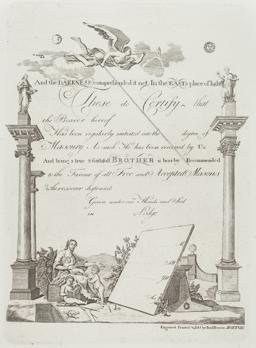 And the DARKNESS comprehended it not. In the EAST a place of Light
These do Certify, that
the Bearer hereof
Has been regularly initiated into the degree of
Masonry. As such He has been received by Us
And being a true & faithfull BROTHER is hereby Recommended
to the Favour of all Free and Accepted Masons
wheresoever dispersed
Given under our Hands and Seal
in Lodge
Engraved Printed & Sold by Paul Revere BOSTON